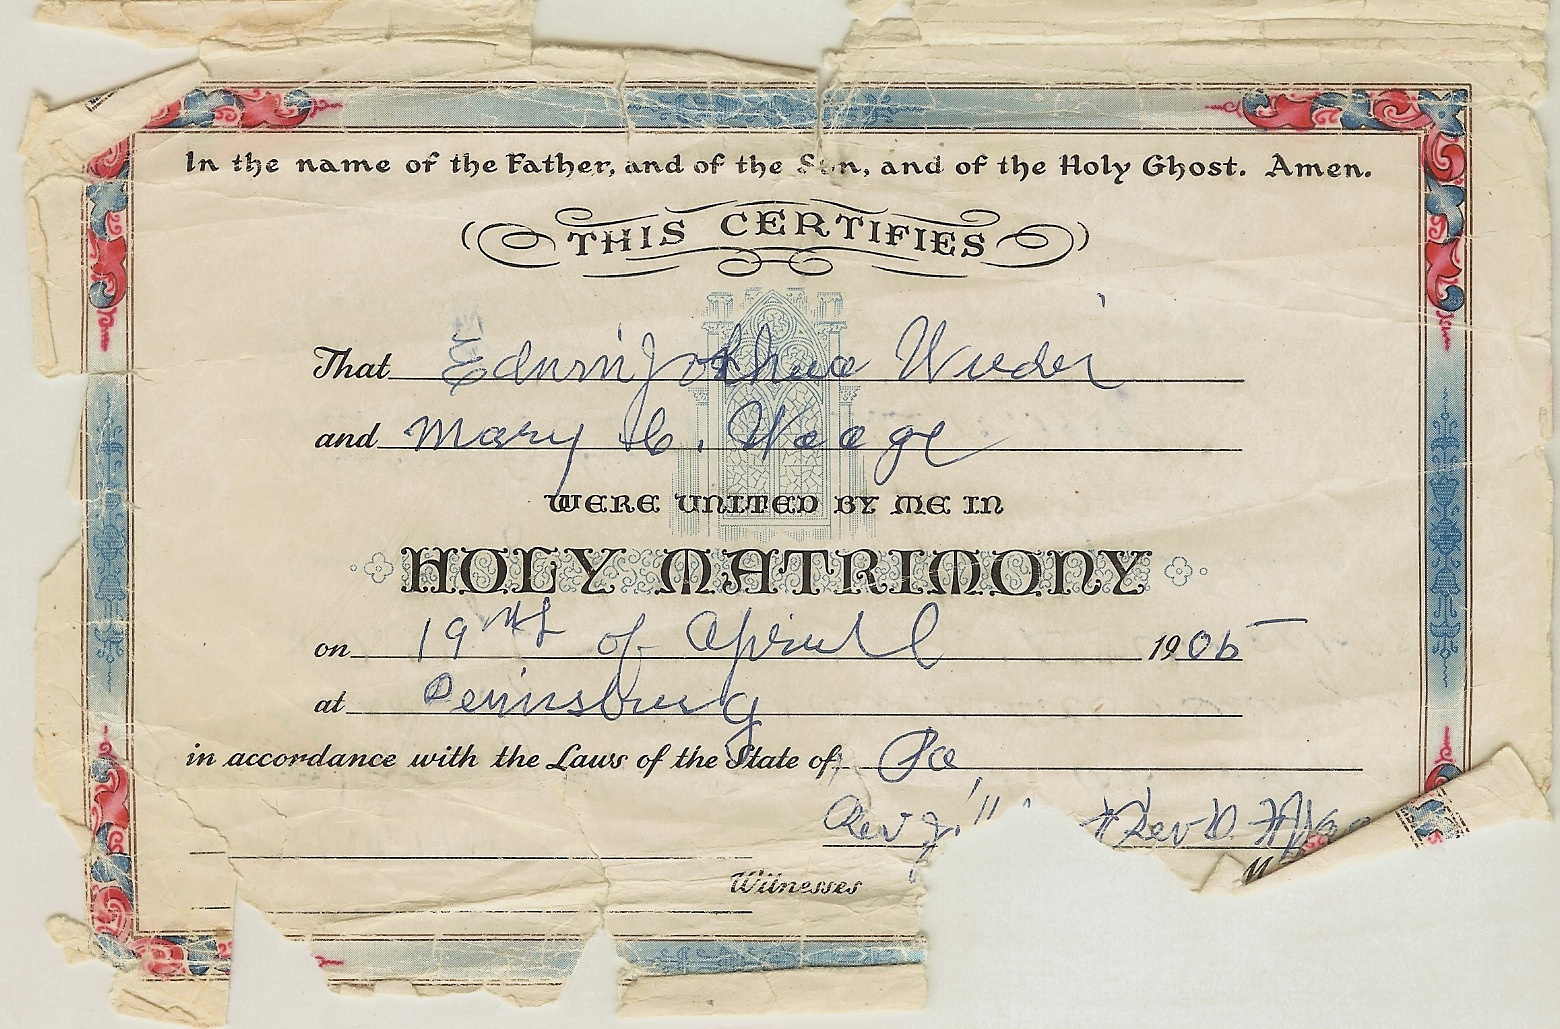 In the name of the Father, and of the Son, and of the Holy Ghost. Amen.
THIS CERTIFIES
That Edwin Joshua Wieder
and Mary C.
WERE UNITED BY ME IN
HOLY MATRIMONY
on 19th of April 1906
at Pennsburg
in accordance with the Laws of the State of Pa
Rev J. Rev D.
Witnesses